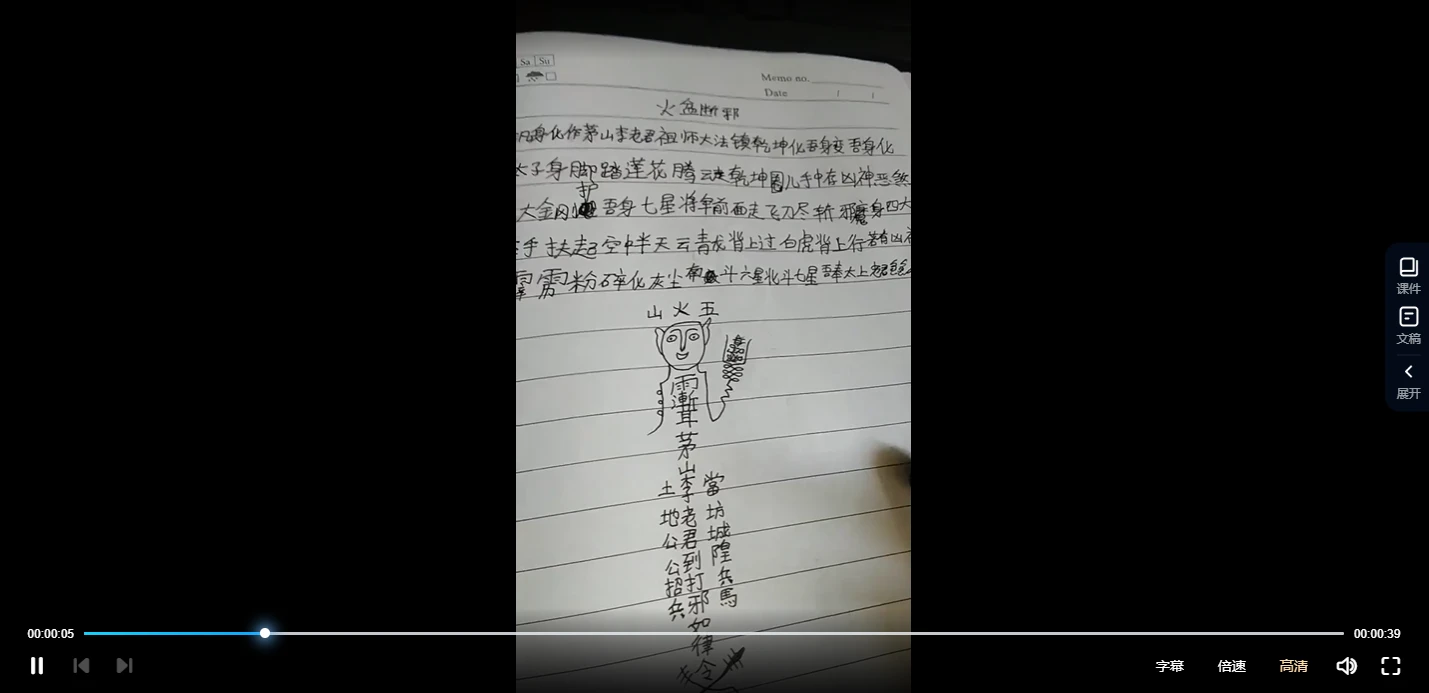 Sa Su
Memo no.
Date / /
火盆断邪
身化作茅山李老君祖师大法镇乾坤化吾身变吾身化
太子身脚踏莲花腾云走乾坤圈儿手中存凶神恶煞
护
大金刚 吾身七星将军前面走飞刀尽斩邪魔身四大
手扶起空中半天云青龙背上过白虎背上行若有凶神
霹雳粉碎化灰尘南斗六星北斗七星吾奉太上老君
山火五
雨
漸
耳
茅山李老君到打邪如律令
當坊城隍兵馬
土地公公招兵
课件
文稿
展开
00:00:05
00:00:39
字幕 倍速 高清